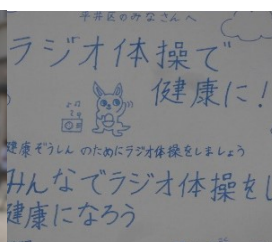 平井区のみなさんへ
ラジオ体操で
健康に!
健康ぞうしんのためにラジオ体操をしましょう
みんなでラジオ体操をし
健康になろう